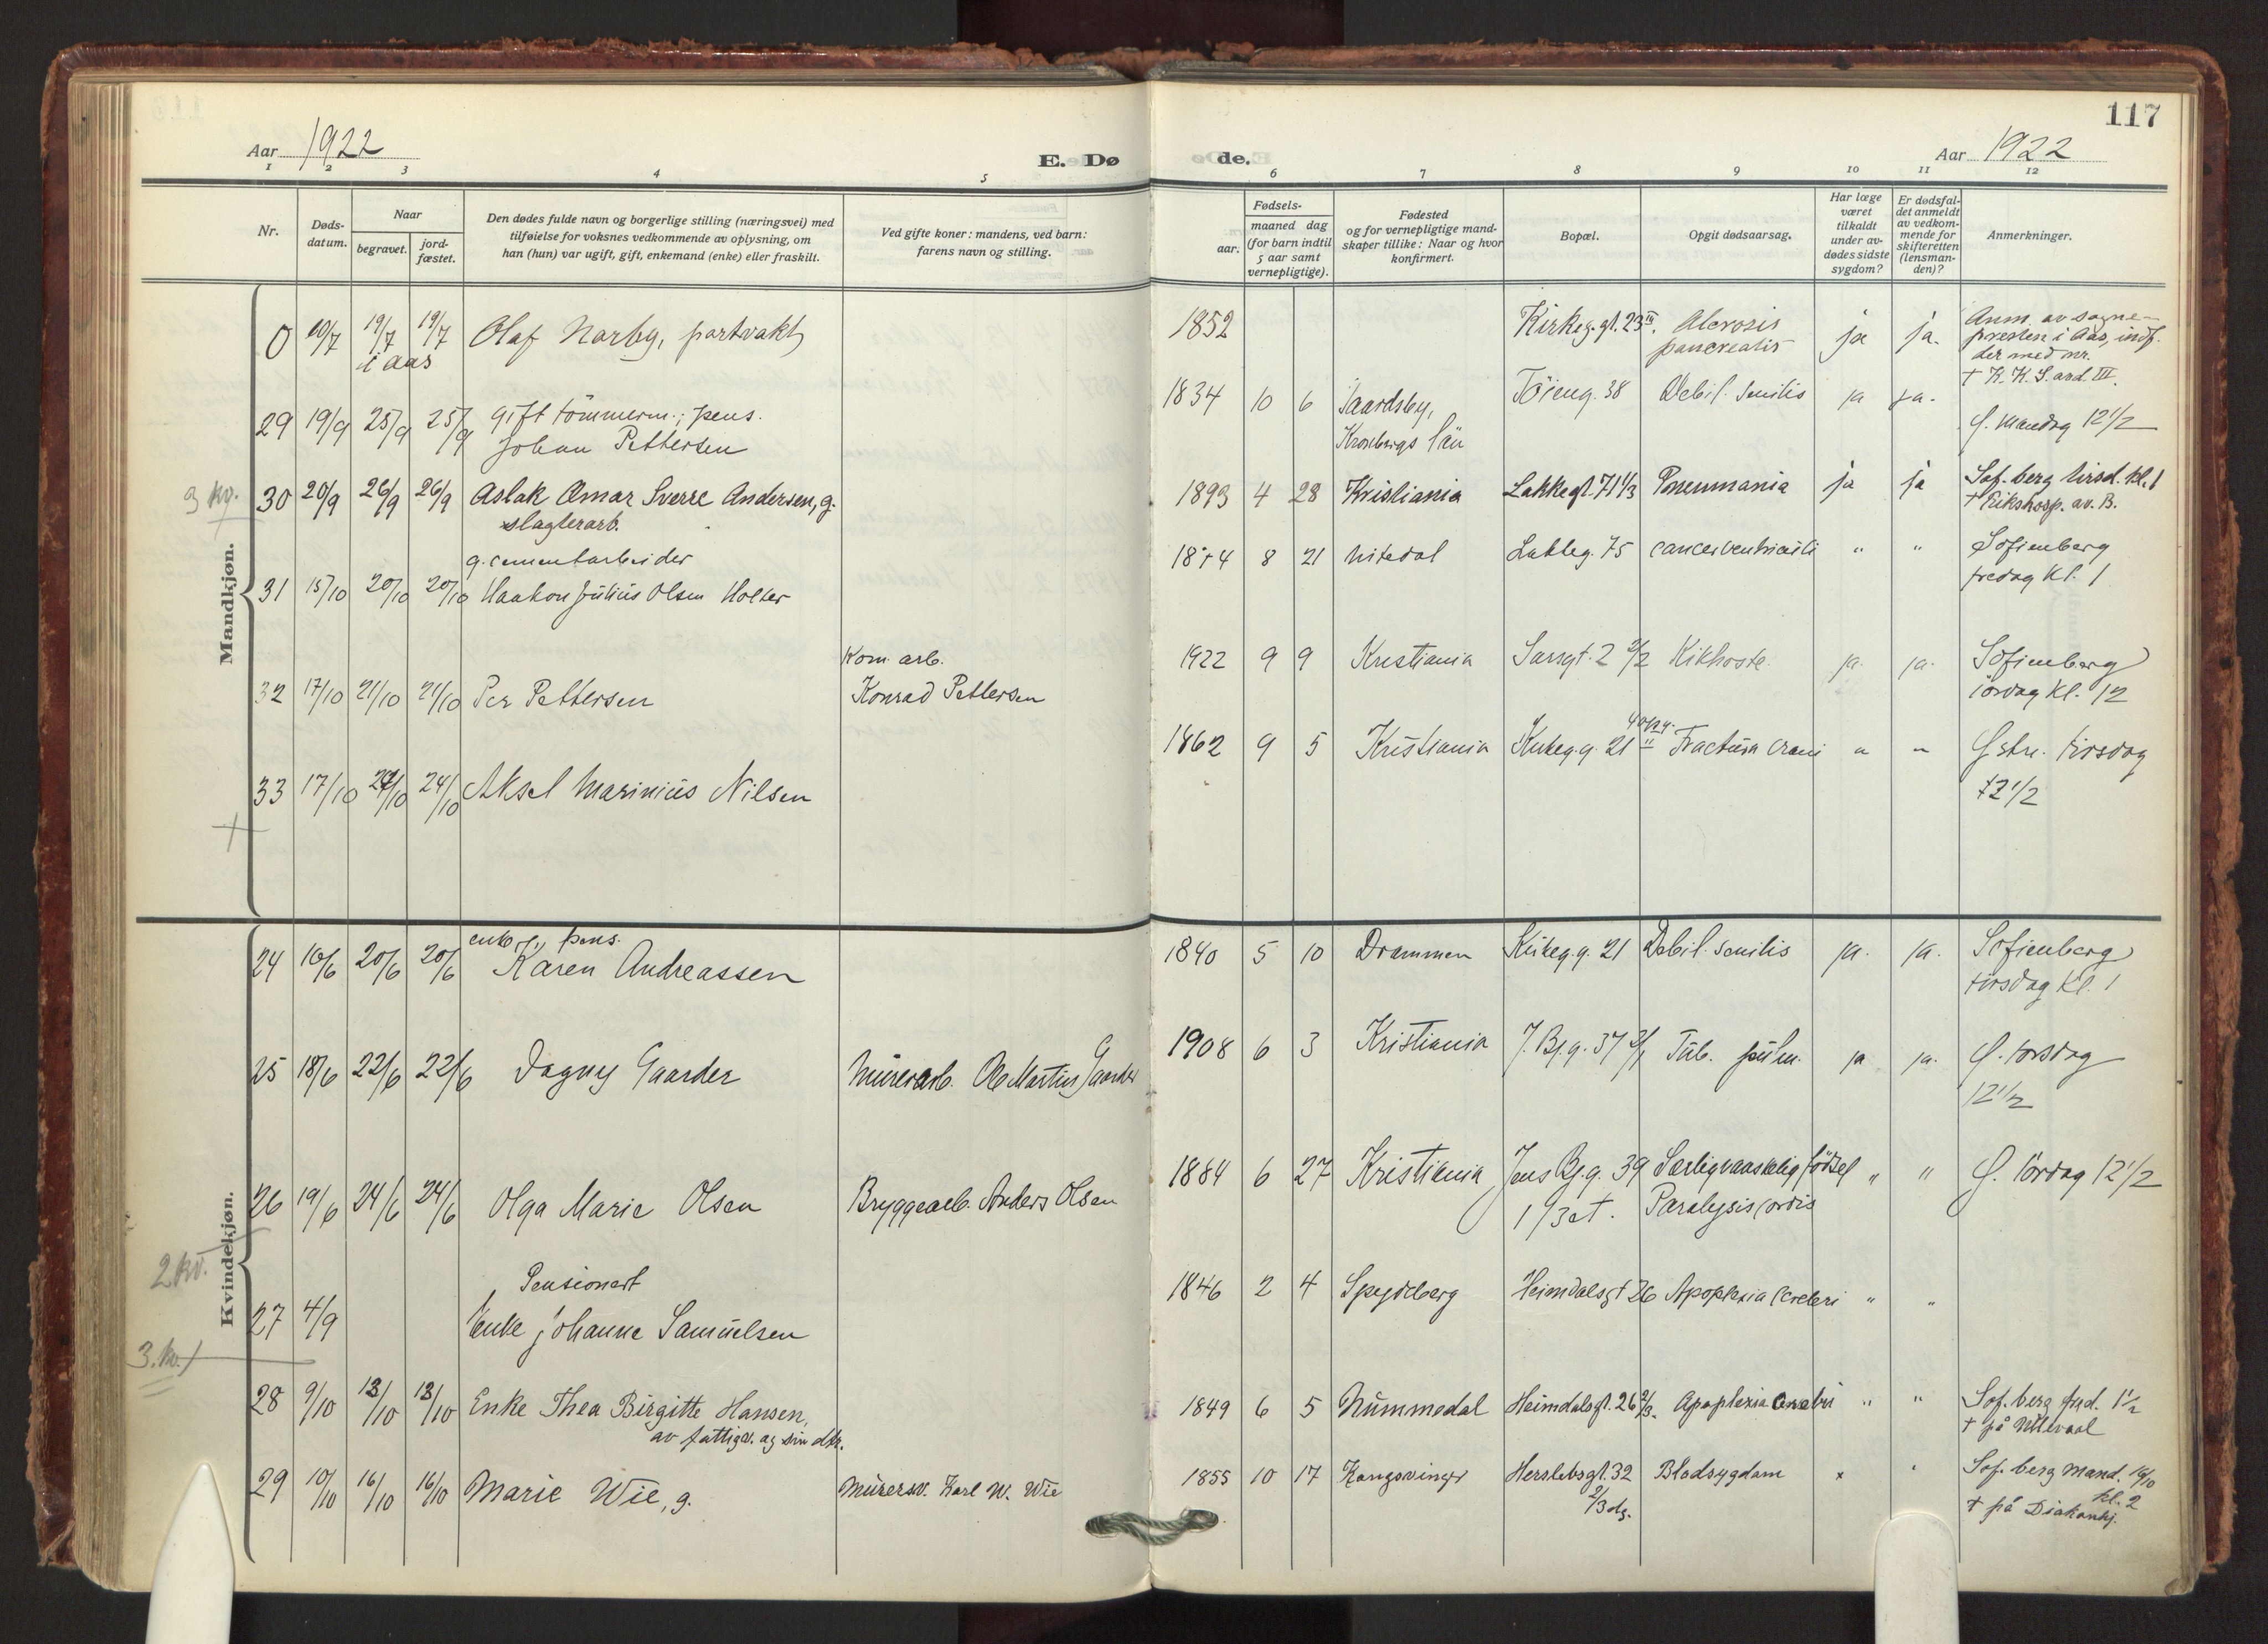 117
Aar 1922
E. Dø
de.
Aar 1922
1 2 3 4 5 6 7 8 9 10 11 12
Nr.
Døds-
datum.
Naar
begravet.
jord-
fæstet.
Den dødes fulde navn og borgerlige stilling (næringsvei) med
tilføielse for voksnes vedkommende av oplysning, om
han (hun) var ugift, gift, enkemand (enke) eller fraskilt.
Ved gifte koner: mandens, ved barn:
farens navn og stilling.
Fødsels-
aar.
maaned dag
(for barn indtil
5 aar samt
vernepligtige).
Fødested
og for vernepligtige mand-
skaper tillike: Naar og hvor
konfirmert.
Bopæl.
Opgit dødsaarsag.
Har læge
været
tilkaldt
under av-
dødes sidste
sygdom?
Er dødsfal-
det anmeldt
av vedkom-
mende for
skifteretten
(lensman-
den)?
Anmerkninger.
Mandkjøn.
0 10/7 19/7 19/7 Olaf Norby, portvakt 1852 Kirkeg.gt. 23 III. pancreatis ja ja. Anm. av sogne-
i Aas presten i Aas, indf.
der med nr.
† K. K. S. avd. III.
29 19/9 25/9 25/9 gift tømmerm.; pens. 1834 10 6 Töieng. 38 Debil. senilis ja ja.
Johan Pettersen Kronbergs län f. mandag 12 1/2
3 kv.
30 20/9 26/9 26/9 Aslak Omar Sverre Andersen, g. 1893 4 28 Kristiania Lakkegt. 71 1/3 Pneumonia ja ja Sof. berg tirsd. kl. 1
slagterarb. † Rikshosp. av. B.
g. cementarbeider
31 15/10 20/10 20/10 Haakon Julius Olsen Holter 8 21 Nitedal Lakkeg. 75 cancer ventriculi " " Sofienberg
fredag kl. 1
Kom. arb.
32 17/10 21/10 21/10 Per Pettersen Konrad Pettersen 1922 9 9 Kristiania 2/2 Kikhoste. ja. ja. Sofienberg
lördag kl. 12
33 17/10 24/10 24/10 Aksel Marinius Nilsen 1862 9 5 Kristiania Kirkeg.g. 21 II Fractura crani " " tirsdag
12 1/2
Kvindekjøn.
enkefr., pens.
24 16/6 20/6 20/6 Karen Andreassen 1840 5 10 Drammen Kirkeg.g. 21 Debil. senilis ja. ja. Sofienberg
tirsdag kl. 1
25 18/6 22/6 22/6 Dagny Gaarder Murerarb. Ole Martin Gaarder 1908 6 3 Kristiania J. Bj.g. 37 3/1 Tub. pulm. ja ja. f. torsdag
12 1/2
26 19/6 24/6 24/6 Olga Marie Olsen Bryggearb. Anders Olsen 1884 6 27 Kristiania Jens Bj.g. 39 födsel " " f. lördag 12 1/2
1/3 et. Paralysis cordis
2 kv.
Pensionert
27 4/9 Enke Johanne Samuelsen 1846 2 4 Spydeberg Heimdalsgt 26 Apoplexia cerebri " "
3. kv.
28 9/10 13/10 13/10 Enke Thea Birgitte Hansen, 1849 6 5 Nummedal Heimdalsgt. 26 2/3. Apoplexia cerebri " " Sof. berg fred. 1 1/2
av fattigv. og sin dtr. † på Ullevaal
29 10/10 16/10 16/10 Marie Wie, g. Murersv. Karl W. Wie 1855 10 17 Kongsvinger Herslebsgt. 32 Blodsygdom " " Sof. berg mand. 16/10
kl. 2
† på Diakonhj.